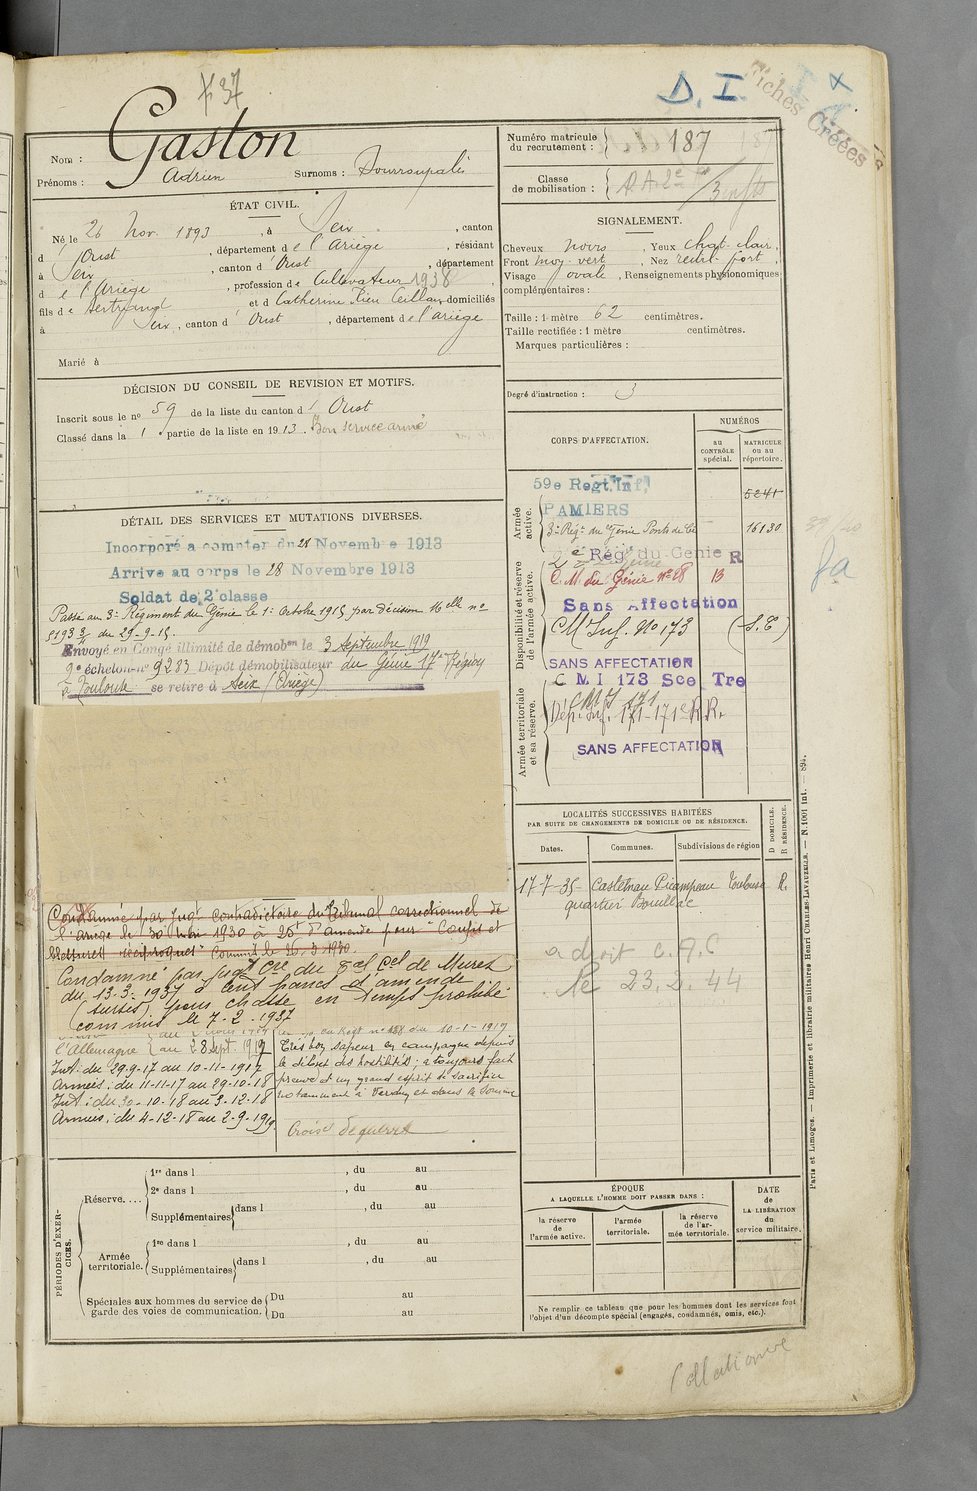 37
D. I.
Fiches Créées
Nom : Gaston
Prénoms : Adrien Surnoms :
Numéro matricule du recrutement : 187
Classe de mobilisation :
ÉTAT CIVIL.
Né le 26 Nov. 1893, à , canton
d'Oust, département de l'Ariège, résidant
à , canton d'Oust, département
d e l'Ariège, profession de Cultivateur 1938
fils de Bertrand et d Catherine domiciliés
à , canton d'Oust, département de l'ariège
Marié à
SIGNALEMENT.
Cheveux noirs, Yeux chat. clair,
Front moy. vert, Nez rectil. fort,
Visage ovale, Renseignements physionomiques
complémentaires :
Taille : 1 mètre 62 centimètres.
Taille rectifiée : 1 mètre centimètres.
Marques particulières :
Degré d'instruction : 3
DÉCISION DU CONSEIL DE REVISION ET MOTIFS.
Inscrit sous le no 59 de la liste du canton d'Oust
Classé dans la 1 e partie de la liste en 1913. Bon service armé
DÉTAIL DES SERVICES ET MUTATIONS DIVERSES.
Incorporé a compter du 28 Novembre 1913
Arrive au corps le 28 Novembre 1913
Soldat de 2e classe
Passé au 3e Régiment du Génie le 1er octobre 1915 par décision 16elle no
5193 3/ du 29-9-15.
Envoyé en Congé illimité de démobon le 3 Septembre 1919
2e échelon no 9283 Dépôt démobilisateur du Génie 17e Région
à Toulouse se retire à Seix (Ariège)
Condamné par Jugt contradictoire du Tribunal correctionnel de
l'ariège le 30 Mai 1930 à 25f d'amende pour "Coups et
blessures réciproques" Commis le 26.3.1930.
Condamné par jugt Cre du Bal Cel de Muret
du 13.3.1937 à cent francs d'amende
(sursis) pour chasse en temps prohibé
commis le 7-2.1937
l'Allemagne au 28 sept. 1919
Int. du 29.9.17 au 10-11-1917
Armées : du 11-11-17 au 29-10-18
Int. : du 30-10-18 au 3-12-18
Armées : du 4-12-18 au 2-9-1919.
en Régt no 188 du 10-1-1919
Très bon sapeur en campagne depuis
le début des hostilités ; a toujours fait
preuve d'un grand esprit de sacrifice
notamment à Verdun et dans la Somme
Croix de guerre
CORPS D'AFFECTATION.
NUMÉROS
au CONTRÔLE spécial.
MATRICULE ou au répertoire.
Armée active.
59e Regt. Inf. 5241
PAMIERS
3e Régt du Génie 16130
Disponibilité et réserve de l'armée active.
2e Rég. du Génie R
C. M. du Génie no 28 13
Sans Affectation
C M Inf. No 173 (S.E)
SANS AFFECTATION
Armée territoriale et sa réserve.
C M I 173 Sce Tre
C M I 171
Dép. Inf. 171-171e R.R.
SANS AFFECTATION
LOCALITÉS SUCCESSIVES HABITÉES
PAR SUITE DE CHANGEMENTS DE DOMICILE OU DE RÉSIDENCE.
Dates. Communes. Subdivisions de région D DOMICILE. R RÉSIDENCE.
17-7-35- Castelnau Picampeau Toulouse R.
quartier Bouillac
a droit c. A. C
le 23.2.44
PÉRIODES D'EXERCICES.
Réserve....
1re dans l , du au
2e dans l , du au
Supplémentaires dans l , du au
Armée territoriale.
1re dans l , du au
Supplémentaires dans l , du au
Spéciales aux hommes du service de garde des voies de communication.
Du au
Du au
ÉPOQUE
A LAQUELLE L'HOMME DOIT PASSER DANS :
la réserve de l'armée active.
l'armée territoriale.
la réserve de l'armée territoriale.
DATE DE LA LIBÉRATION du service militaire.
Ne remplir ce tableau que pour les hommes dont les services font
l'objet d'un décompte spécial (engagés, condamnés, omis, etc.).
Paris et Limoges. — Imprimerie et librairie militaires Henri CHARLES-LAVAUZELLE. — N. 1001 int. — 894.
Collationné